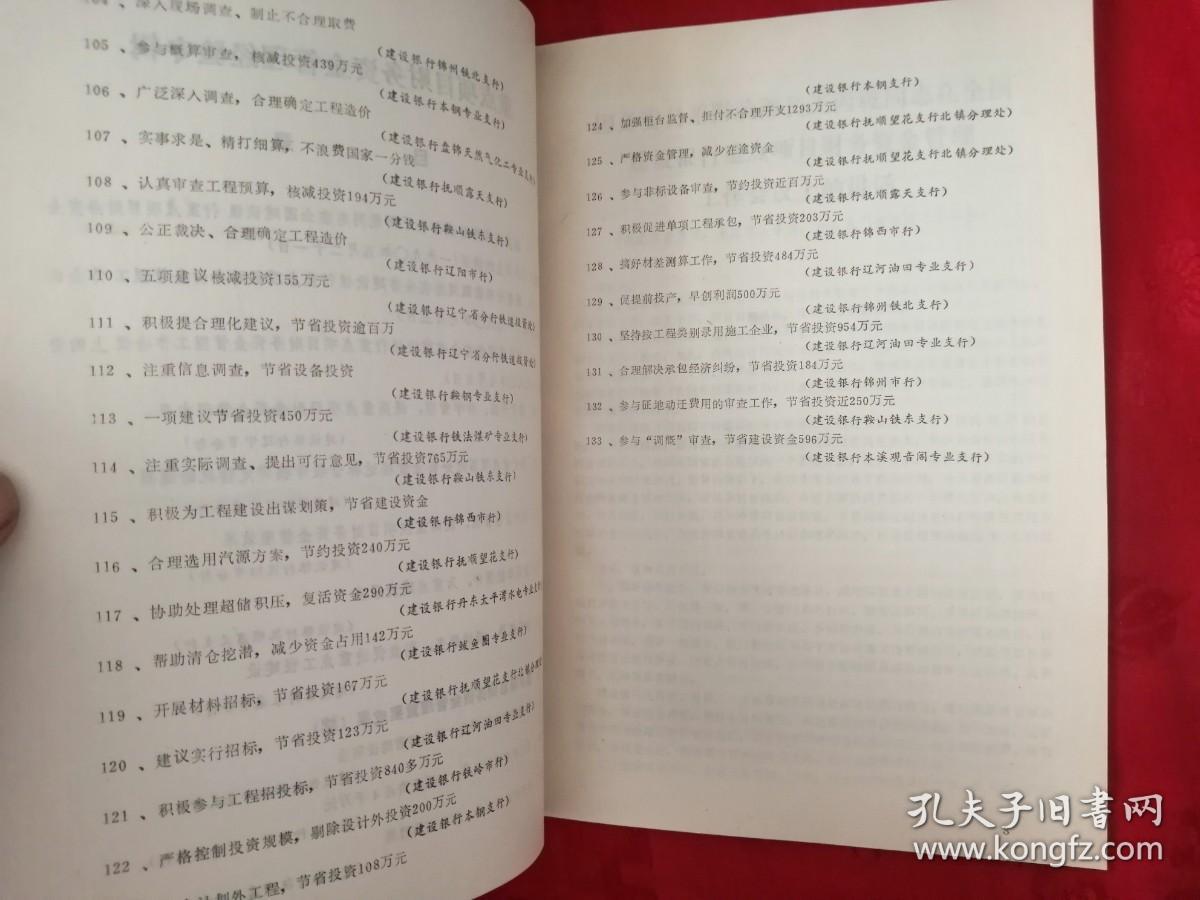 104、深入现场调查、制止不合理取费
(建设银行锦州铁北支行)
105、参与概算审查，核减投资439万元
(建设银行本钢专业支行)
106、广泛深入调查，合理确定工程造价
(建设银行盘锦天然气化二专业支行)
107、实事求是、精打细算，不浪费国家一分钱
(建设银行抚顺露天支行)
108、认真审查工程预算，核减投资194万元
(建设银行鞍山铁东支行)
109、公正裁决、合理确定工程造价
(建设银行辽阳市行)
110、五项建议核减投资155万元
(建设银行辽宁省分行铁道投资处)
111、积极提合理化建议，节省投资逾百万
(建设银行辽宁省分行铁道投资处)
112、注重信息调查，节省设备投资
(建设银行鞍钢专业支行)
113、一项建议节省投资450万元
(建设银行铁法煤矿专业支行)
114、注重实际调查、提出可行意见，节省投资765万元
(建设银行鞍山铁东支行)
115、积极为工程建设出谋划策，节省建设资金
(建设银行锦西市行)
116、合理选用汽源方案，节约投资240万元
(建设银行抚顺望花支行)
117、协助处理超储积压，复活资金290万元
(建设银行丹东太平湾水电专业支行)
118、帮助清仓挖潜，减少资金占用142万元
(建设银行鲅鱼圈专业支行)
119、开展材料招标，节省投资167万元
(建设银行抚顺望花支行北镇分理处)
120、建议实行招标，节省投资123万元
(建设银行辽河油田专业支行)
121、积极参与工程招投标，节省投资840多万元
(建设银行铁岭市行)
122、严格控制投资规模，剔除设计外投资200万元
(建设银行本钢支行)
计划外工程，节省投资108万元
(建设银行本钢支行)
124、加强柜台监督、拒付不合理开支1293万元
(建设银行抚顺望花支行北镇分理处)
125、严格资金管理，减少在途资金
(建设银行抚顺望花支行北镇分理处)
126、参与非标设备审查，节约投资近百万元
(建设银行抚顺露天支行)
127、积极促进单项工程承包，节省投资203万元
(建设银行锦西市行)
128、搞好材差测算工作，节省投资484万元
(建设银行辽河油田专业支行)
129、促提前投产，早创利润500万元
(建设银行锦州铁北支行)
130、坚持按工程类别录用施工企业，节省投资954万元
(建设银行辽河油田专业支行)
131、合理解决承包经济纠纷，节省投资184万元
(建设银行锦州市行)
132、参与征地动迁费用的审查工作，节省投资近250万元
(建设银行鞍山铁东支行)
133、参与“调概”审查，节省建设资金596万元
(建设银行本溪观音阁专业支行)
孔夫子旧书网
www.kongfz.com